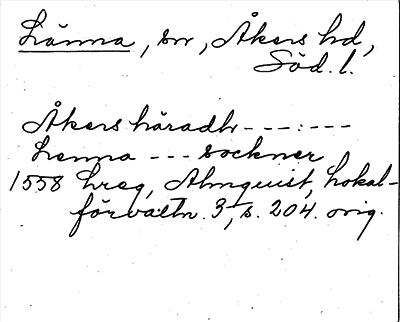 Länna, sn, Åkers hd,
Söd. l.
Åkers häradh ---:---
Lenna --- sockner
1558 hreg, Almquist, Lokal-
förvaltn. 3, s. 204. orig.